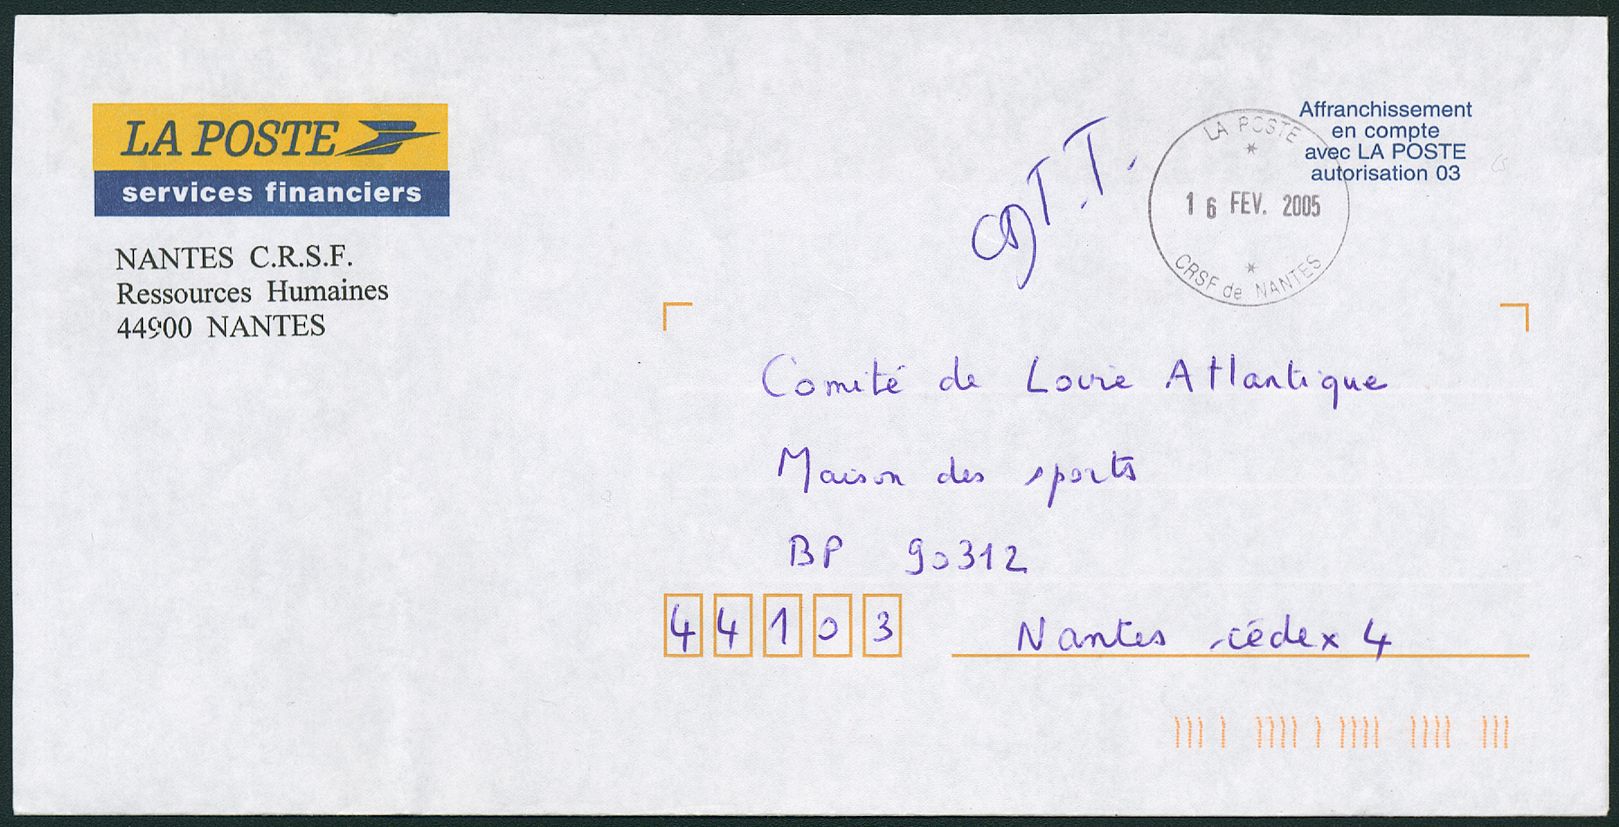 LA POSTE
services financiers
NANTES C.R.S.F.
Ressources Humaines
44900 NANTES
LA POSTE
16 FEV. 2005
CRSF de NANTES
Affranchissement
en compte
avec LA POSTE
autorisation 03
Comité de Loire Atlantique
Maison des sports
BP 90312
44103 Nantes cédex 4